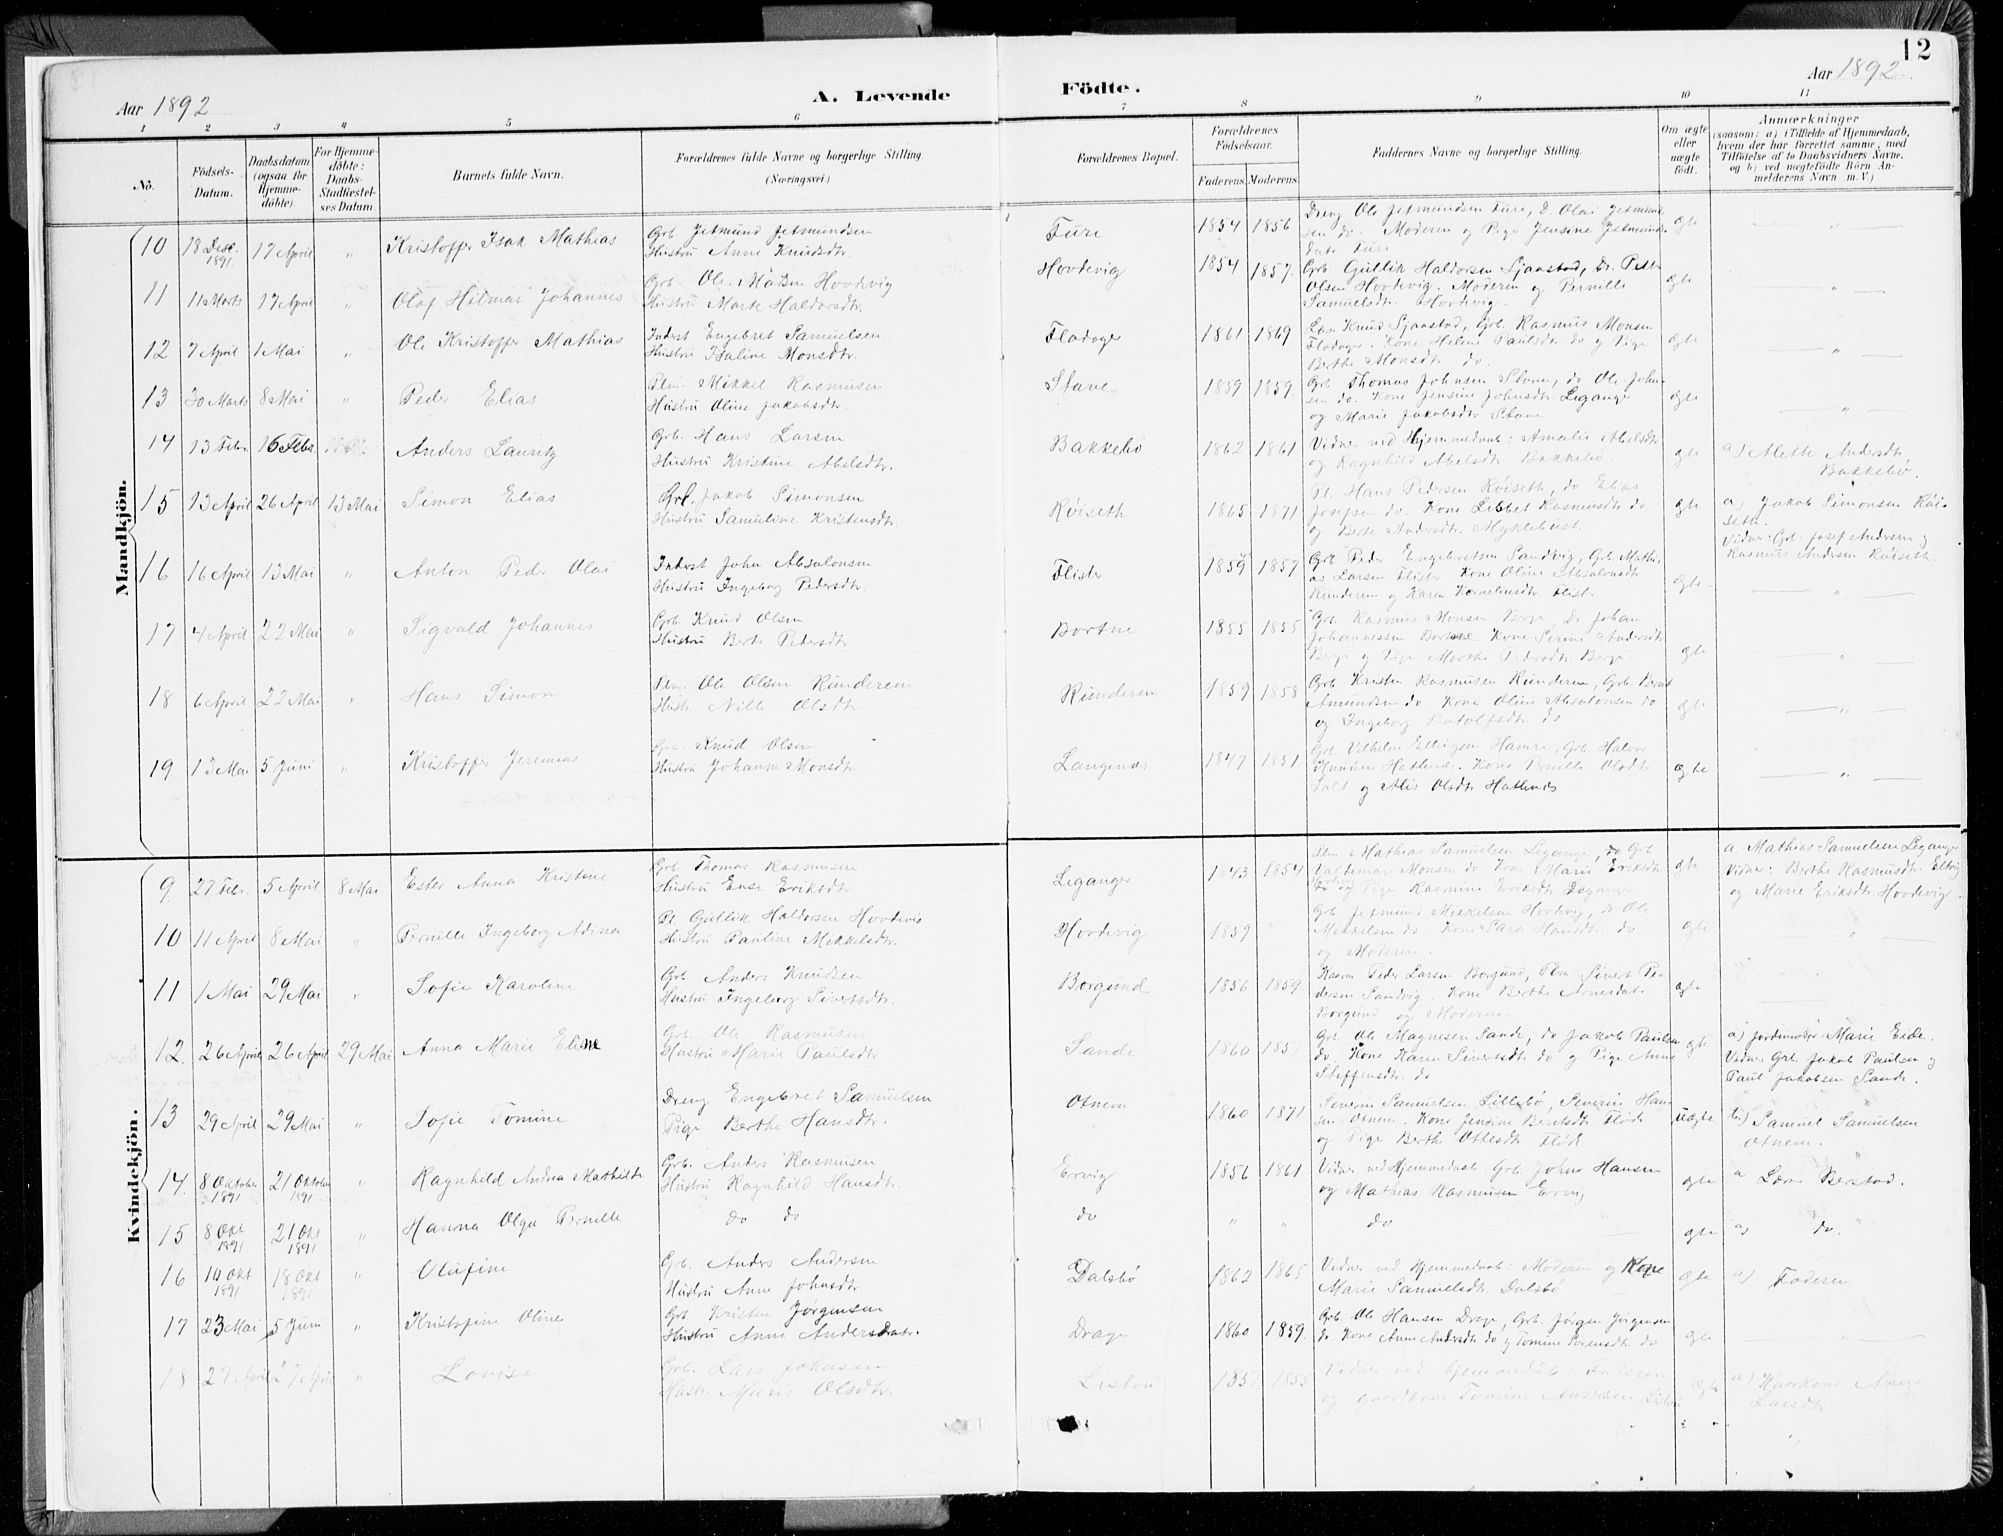 12
Aar 1892
A. Levende Födte.
Aar 1892.
1 2 3 4 5 6 7 8 9 10 11
No.
Födsels-Datum.
Daabsdatum (ogsaa for Hjemme-döbte).
For Hjemme-döbte: Daabs-Stadfæstel-ses Datum.
Barnets fulde Navn.
Forældrenes fulde Navne og borgerlige Stilling (Næringsvei.)
Forældrenes Bopæl.
Forældrenes Födselsaar.
Faderens. Moderens.
Faddernes Navne og borgerlige Stilling.
Om ægte eller uægte födt.
Anmærkninger
(saasom: a) i Tilfælde af Hjemmedaab,
hvem der har forrettet samme, med
Tilföielse af to Daabsvidners Navne.
og b) ved uægtefödte Börn An-
melderens Navn m. V.)
Mandkjön.
10 18 Dese. 1891. 17 April " Kristoffer Isak Mathias
Grb. Jetmund Jetmundsen
Hustru Anne Knudsdtr.
Fure 1854 1856
Dreng Ole Jetmundsen Fure, D. Olai Jetmund-
sen do. Moderen og Pige Jensine Jetmunds-
datr Fure
ægte "
11 11 Marts 17 April " Olaf Hilmar Johannes
Grb. Ole Madsen Hovdevig
Hustru Marte Haldorsdtr.
Hovdevig 1854 1857.
Grb. Gullik Haldorsen Sjaastad, Do. Petter
Olsen Hovdevig. Moderen og Pernille
Samuelsdtr. Hovdevig.
ægte "
12 7 April 1 Mai " Ole Kristoffer Mathias
Inderst Engebret Samuelsen
Hustru Isaline Monsdtr.
Flatøge 1861 1869
Knud Sjaastad, Grb. Rasmus Monsen
Flatøge. Kone Helene Paulsdtr do og Pige
Berthe Monsdtr. do.
ægte "
13 30 Marts 8 Mai " Peder Elias
Plm. Mikkel Rasmusen
Hustru Oline Jakobsdtr.
Stave 1859 1859.
Grb Thomas Johnsen Stave, do Ole John-
sen do. Kone Jensine Johnsdtr Leganger
og Marie Jakobsdtr Stave
ægte "
14 13 Febr. 16 Febr. Anders Lauritz
Grb. Hans Larsen
Hustru Kristine Abelsdtr.
Bakkebø 1862 1861
Vidner ved Hjemmedaab: Amalie Abelsdtr
og Ragnhild Abelsdtr Bakkebø.
ægte a) Alette Andersdtr.
Bakkebø.
15 13 April 26 April 13 Mai Simon Elias
Grb. Jakob Simonsen
Hustru Samuline Kristensdtr.
Røiseth 1865 1871
Pl. Hans Pedersen Røiseth, do Elias
Josefsen do. Kone Libbet Rasmusdtr do
og Berte Andersdtr. Myklebust.
ægte a) Jakob Simonsen Røi-
seth.
Vidner: Grb. Josef Andersen og
Rasmus Andersen Røiseth.
16 16 April 13 Mai " Anton Peder Olai
Inderst John Absalonsen
Hustru Ingeborg Pedersdtr.
Flister 1859 1857
Grb Peder Engebretsen Sandvig, Grb. Mathi-
as Larsen Flister. Kone Oline Absalonsdtr
Runderen og Karen Korneliusdtr Flist.
ægte "
17 4 April 22 Mai " Sigvald Johannes
Grb Knud Olsen
Hustru Berte Petersdtr
Bortne 1855 1855
Grb. Rasmus Monsen Berge, Do Johan
Johannessen Bortne Kone Serine Andersdtr
Berge og Pige Marthe Petersdtr Berge.
ægte "
18 6 April 22 Mai " Hans Simon
Plm. Ole Olsen Runderen
Hustr. Nille Olsdtr.
Runderen 1859 1858
Grb Kristen Rasmusen Runderen, Grb. Bernt
Amundsen do Kone Oline Absalonsen do
og Ingeborg Botolfsdtr do
ægte "
19. 13 Mai 5 Juni " Kristoffer Jeremias
Grb. Knud Olsen
Hustru Johanne Monsdtr.
Langenæs 1847 1851
Grb. Vilhelm Ellingsen Hamre, Grb. Halvor
Knudsen Hatlenæs. Kone Pernille Olsdtr
Salt og Alis Olsdtr Hatlenæs
ægte "
Kvindekjön.
9. 27 Febr. 5 April 8 Mai Ester Anna Kristine
Grb Thomas Rasmusen
Hustru Ense Eriksdtr
Leganger 1843 1854
Plm. Mathias Samuelsen Leganger, do Grb
Valtemar Monsen do Kone Marie Eriksdtr
og Pige Rasmine Eriksdtr Leganger
ægte a. Mathias Samuelsen Leganger
Vidner: Berthe Rasmusdtr. Eltvig
og Marie Eriksdtr Hovdevig.
10 11 April 8 Mai " Pernille Ingeborg Adina
Pl. Gullik Haldorsen Hovdevig
Hustru Pauline Mikkelsdtr.
Hovdevig 1859 "
Grb Jetmund Mikkelsen Hovdevig, D Ole
Mikkelsen do. Kone Sara Hansdtr. do
og Moderen.
ægte "
11 1 Mai 29 Mai " Sofie Karoline
Grb. Anders Knudsen
Hustru Ingeborg Sivertsdtr.
Borgund 1856 1859.
Kaarm Peder Larsen Borgund, Plm Sivert Pe-
dersen Sandvig. Kone Berthe Arnesdatr
Borgund og Moderen.
ægte
12. 26 April 26 April 29 Mai Anna Marie Eline
Grb. Ole Rasmusen
Hustru Marie Paulsdtr
Sande 1860 185
Grb Ole Magnesen Sande, do Jakob Paulsen
do. Kone Karen Sivertsdtr do og Pige Anne
Steffensdtr. do
ægte a) Jordemoder Marie Eide.
Vidner Grb. Jakob Paulsen og
Paul Jakobsen Sande.
13 29 April 29 Mai " Sofie Tomine
Dreng Engebret Samuelsen
Pige Berthe Hansdtr.
Otnem 1860 1871
Severin Samuelsen Lillebø, Severin Han-
sen Otnem. Kone Jensine Berntsdtr Flode
og Pige Berth Ottesdtr Flode
uægte b.) Samuel Samuelsen
Otnem.
14. 8 Oktober 1891 21 Oktober 1891 " Ragnhild Andrea Mathilde
Grb. Anders Rasmusen
Hustru Ragnhild Hansdtr.
Ervig 1856 1861
Vidner ved Hjemmedaab: Grb. Johns Hansen
og Mathias Rasmusen Ervig
ægte a Lærer Berstad.
15 8 Okt 1891 21 Okt 1891 " Hanna Olga Pernille
do do do " " do
ægte a) do.
16 10 Okt 1891 18 Okt 1891 " Olufine
Grb. Anders Andersen
Hustru Anne Johnsdtr.
Dalsbø 1862 1865
Vidner ved Hjemmedaab: Moderen og Kone
Marie Samuelsdtr. Dalsbø
ægte a) Faderen
17 23 Mai 5 Juni " Kristofine Oline
Grb. Kristen Jørgensen
Hustru Anne Andersdatr.
Drage 1860 1859.
Grb Ole Hansen Drage, Grb. Jørgen Jørgensen
do. Kone Anne Andersdtr do og Tomine Sørensdtr. do
ægte
18 27 April 27 April " Lovise
Grb. Lars Johnsen
Hustr. Marie Olsdtr.
Listou 1857 1855
Vidner ved Hjemmedaab: Faderen
og gaardkone Tomine Andersen Listou
ægte a) Kaarkone Anne
Larsdtr.